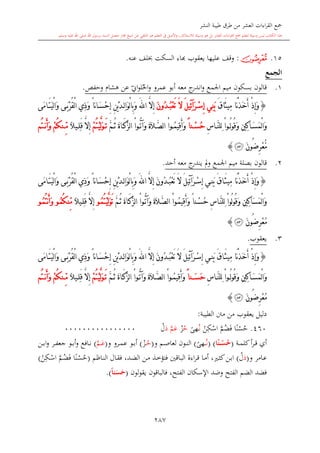 جمع القراءات العشر من طرق طيبة النشر
١٥. ﴿مُّعْرِضُونَ﴾ : وقف عليها يعقوب بهاء السكت بخلف عنه.
الجمع
١. قالون بسكون ميم الجمع واندرج معه أبو عمرو والحلواني عن هشام وحفص.
﴿ وَإِذْ أَخَذْنَا مِيثَاقَ بَنِي إِسْرَائِيلَ لَا تَعْبُدُونَ إِلَّا اللَّهَ وَبِالْوَالِدَيْنِ إِحْسَانًا وَذِي الْقُرْبَى وَالْيَتَامَى
وَالْمَسَاكِينِ وَقُولُوا لِلنَّاسِ حُسْنًا وَأَقِيمُوا الصَّلَاةَ وَآتُوا الزَّكَاةَ ثُمَّ تَوَلَّيْتُمْ إِلَّا قَلِيلًا مِّنكُمْ وَأَنتُم
مُّعْرِضُونَ ﴾
٢. قالون بصلة ميم الجمع ولم يندرج معه أحد.
﴿ وَإِذْ أَخَذْنَا مِيثَاقَ بَنِي إِسْرَائِيلَ لَا تَعْبُدُونَ إِلَّا اللَّهَ وَبِالْوَالِدَيْنِ إِحْسَانًا وَذِي الْقُرْبَى وَالْيَتَامَى
وَالْمَسَاكِينِ وَقُولُوا لِلنَّاسِ حُسْنًا وَأَقِيمُوا الصَّلَاةَ وَآتُوا الزَّكَاةَ ثُمَّ تَوَلَّيْتُمُو إِلَّا قَلِيلًا مِّنكُمُو وَأَنتُمُو
مُّعْرِضُونَ ﴾
٣. يعقوب.
﴿ وَإِذْ أَخَذْنَا مِيثَاقَ بَنِي إِسْرَائِيلَ لَا تَعْبُدُونَ إِلَّا اللَّهَ وَبِالْوَالِدَيْنِ إِحْسَانًا وَذِي الْقُرْبَى وَالْيَتَامَى
وَالْمَسَاكِينِ وَقُولُوا لِلنَّاسِ حَسَنًا وَأَقِيمُوا الصَّلَاةَ وَآتُوا الزَّكَاةَ ثُمَّ تَوَلَّيْتُمْ إِلَّا قَلِيلًا مِّنكُمْ وَأَنتُم
مُّعْرِضُونَ ﴾
دليل يعقوب من متن الطيبة:
٤٦٠. حُسْنًا فَضُمَّ اسْكِنْ نُهىً حُزْ عَمَّ دَلْ ...............
أي قرأ كلمة (حُسْنًا) (نُهىً) النون لعاصم و(حُزْ) أبو عمرو و(عَمَّ) نافع وأبو جعفر وابن
عامر و(دَلْ) ابن كثير، أما قراءة الباقين فتؤخذ من الضد، فقال الناظم (حُسْنًا فَضُمَّ اسْكِنْ)
فضد الضم الفتح وضد الإسكان الفتح، فالباقون يقولون (حَسَنًا).
٢٨٧